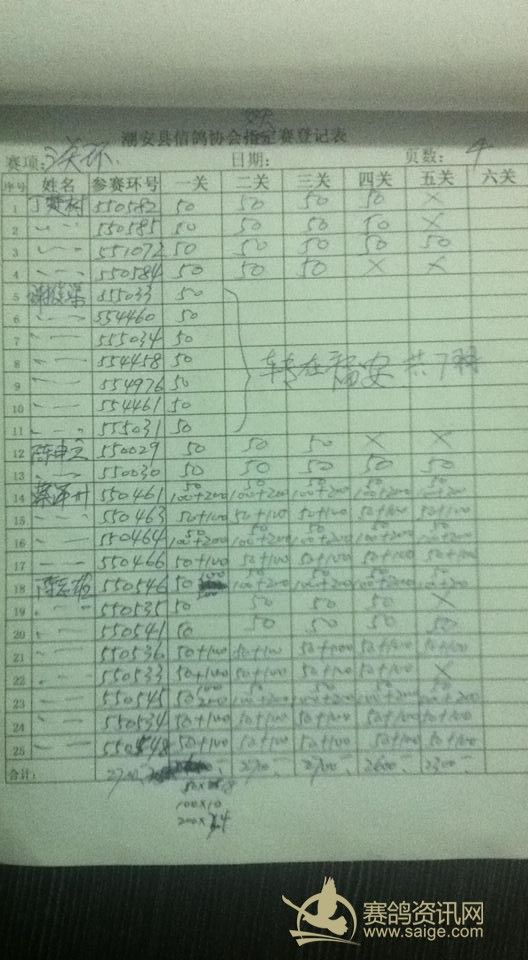 潮安县信鸽协会指定赛登记表
赛项: 三关环 日期: 页数: 4
序号 姓名 参赛环号 一关 二关 三关 四关 五关 六关
1 550582 50 50 50 50 ×
2 〃 〃 550585 50 50 50 50 ×
3 〃 〃 551072 50 50 50 50 50
4 〃 〃 550584 50 50 50 × ×
5 555033 50
6 〃 〃 554460 50
7 〃 〃 555034 50
8 〃 〃 554458 50 共7羽
9 〃 〃 554976 50
10 〃 〃 554461 50
11 〃 〃 555031 50
12 550029 50 50 50 × ×
13 〃 〃 550030 50 50 50 50 50
14 550461 50 100+200 50 100+200 50 100+200 50 100+200 50 100+200
15 〃 〃 550463 50+100 50+100 50+100 50+100 50+100
16 〃 〃 550464 50 100+200 50 100+200 50 100+200 50 100+200 50 100+200
17 〃 〃 550466 50+100 50+100 50+100 50+100 50+100
18 550546 50 50 100+200 50 100+200 50 100+200 50 100+200
19 〃 〃 550535 50 50 50 50 ×
20 〃 〃 550541 50 50 50 50 50
21 〃 〃 550536 50+100 50+100 50+100 50+100 50+100
22 〃 〃 550533 50+100 50+100 50+100 50+100 ×
23 〃 〃 550545 50 100 200 50 100+200 50 100+200 50 100+200 50 100+200
24 〃 〃 550534 50+100 50+100 50+100 50+100 50+100
25 〃 〃 550548 50+100 50+100 50+100 50+100 50+100
合计: 2700 2700 2700 2600 2300
100×10
赛鸽资讯网
www.saige.com